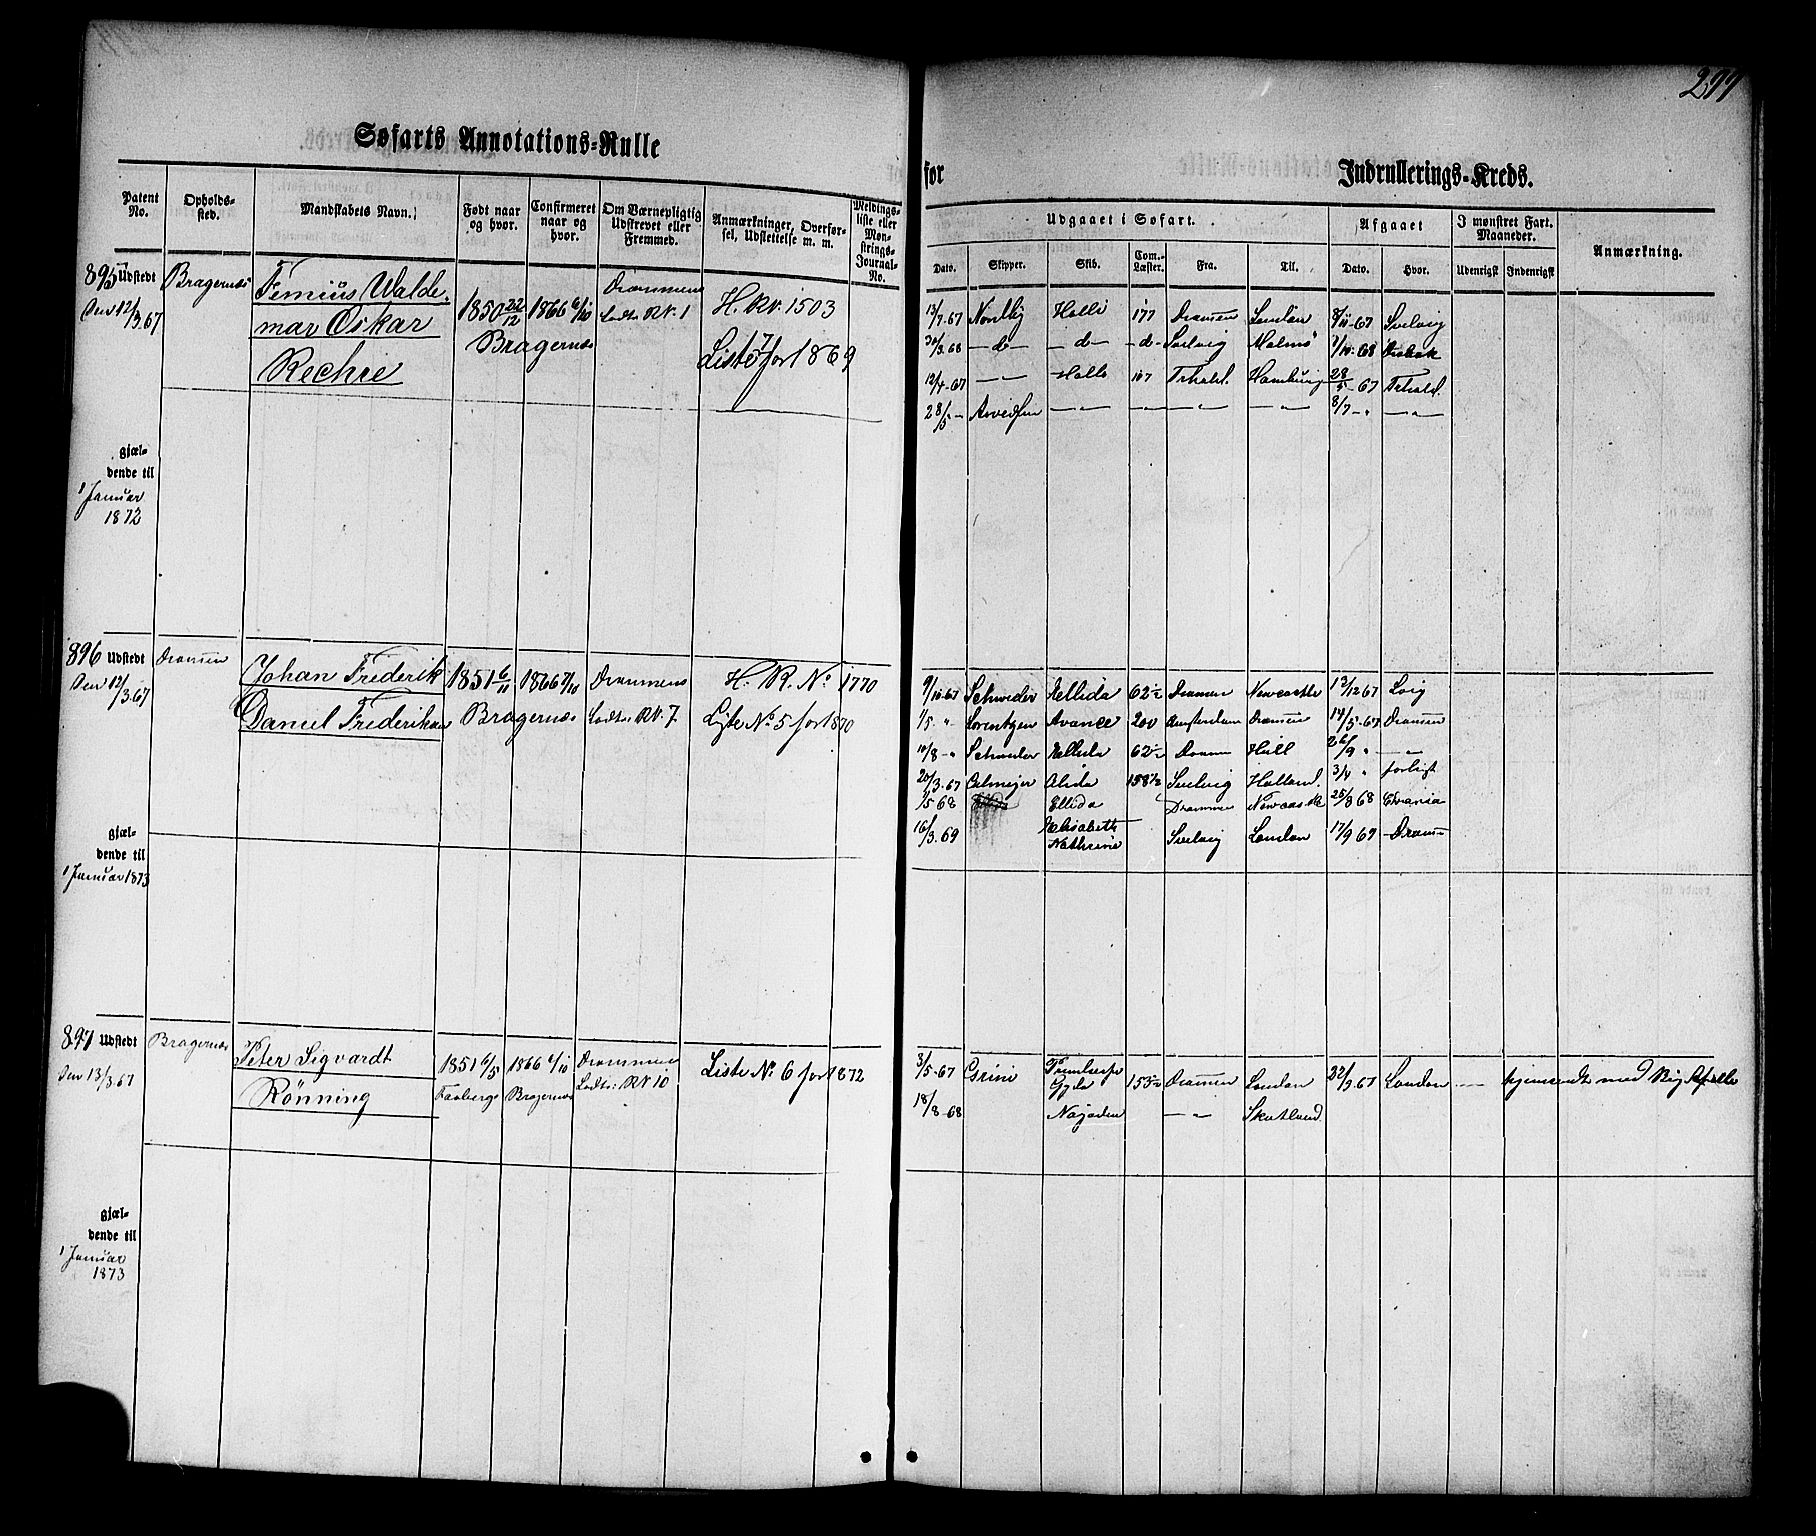 299
Søfarts Annotations-Rulle
for Indrullerings-Kreds.
Patent No.
Opholdssted.
Mandskabets Navn.
Født naar og hvor.
Confirmeret naar og hvor.
Om Værnepligtig Udstrevet eller Fremmed.
Anmærkninger, Overførsel, Udslettelse m. m.
Meldingsliste eller Mønstrings-Journal-No.
Udgaaet i Søfart.
Afgaaet
I mønstret Fart. Maaneder.
Anmærkning.
Dato. Skipper. Skib. Com.-Læster. Fra. Til. Dato. Hvor. Udenrigsk Indenrigsk
895 Udstedt Bragernæs
Den 12/3.67
Walde-
mar Oskar
Rechie
1850 22/12 1866 6/10
Bragernæs
Drammens
Lodts: RN. 1
H. RN. 1503
Liste 7 for 1869
13/7.67 Halli 177 Drammen London 8/11-67 Svelvig
30/3.68 —d— —d— —d— Svelvig Malmø 7/10-68
12/4-67 —„— Halli 107 Frhald. Hamburg 28/5-67 Frhald.
28/5 — —„— —„— —„— —„— 8/7-„ —„—
gjæl-
dende til
1 Januar
1872
896 Udstedt Drammen
Den 12/3.67
Johan Frederik
Daniel Frederiksen
1851 6/11 1866 7/10
Bragernæs
Drammens
Lodts: RN. 7.
H. R. No. 1770
Liste No. 5 for 1870
9/10-67 Schrøder Ellida 62½ Drammen Newcastle 13/12 67
1/5 „ Lorentzen Avance 200 Amsterdam Drammen 14/5-67 Drammen
10/8-„ Schrøder Ellida 62½ Drammen Hull 26/9 „ —„—
20/3.67 Alida 158½ Svelvig Holland. 3/4 „ forligt
1/5 68 Ellida Drammen Newcastle 25/8 68
16/3.69 Elisabeth
Kathrine Svelvig London 17/9 69 Dramn
gjæl-
dende til
1 Januar 1873
897 Udstedt Bragernæs
Den 13/3.67
Peter Sigvardt
Rönning
1851 6/5 1866 6/10
Faaberg Bragernæs
Drammens
Lodts: RN 10
Liste No. 6 for 1872
3/5-67
Gyda 155½ Drammen London 22/9 67 London — hjemsendt med Brig
18/8-68 Najaden —„— Skotland.
gjæl-
dende til
1 Januar
1873